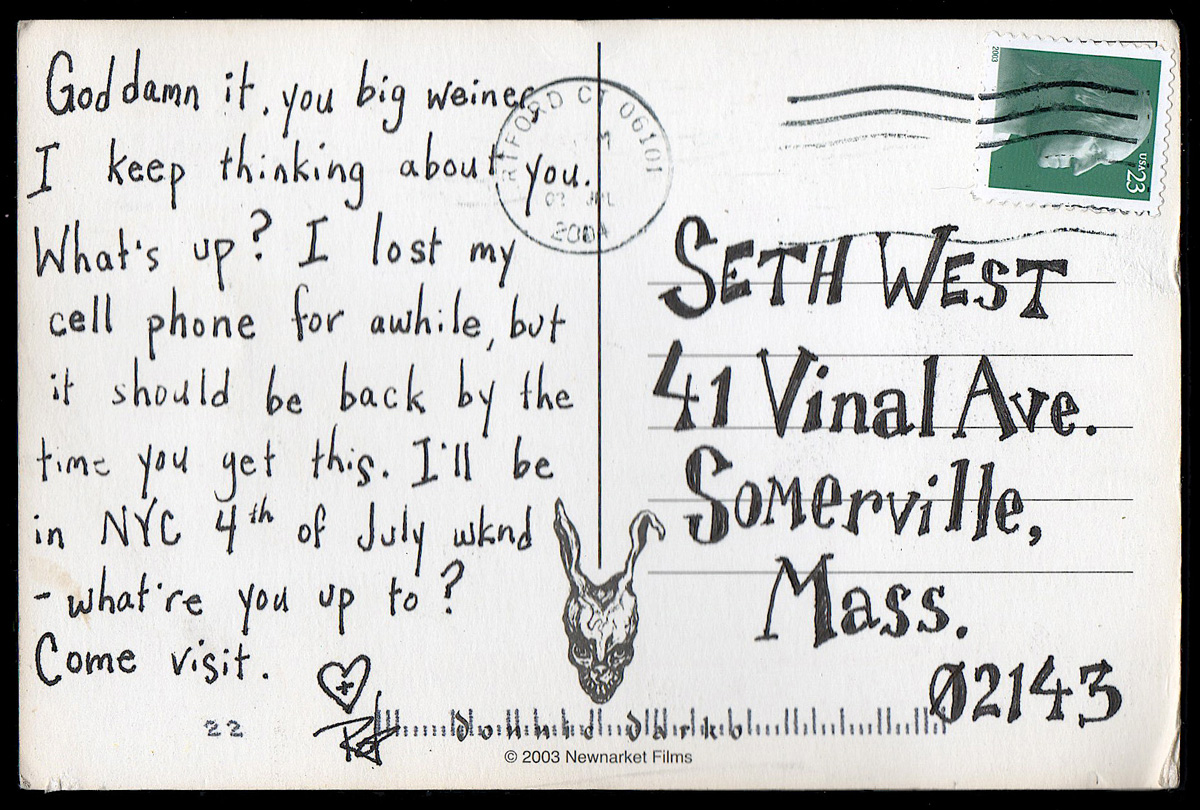 God damn it, you big weiner
I keep thinking about you.
What's up? I lost my
cell phone for awhile, but
it should be back by the
time you get this. I'll be
in NYC 4th of July wknd
- what're you up to?
Come visit.
22
RTFORD CT 06101
2004
2003
USA 23
SETH WEST
41 Vinal Ave.
Somerville,
Mass.
02143
donnie darko
© 2003 Newnarket Films